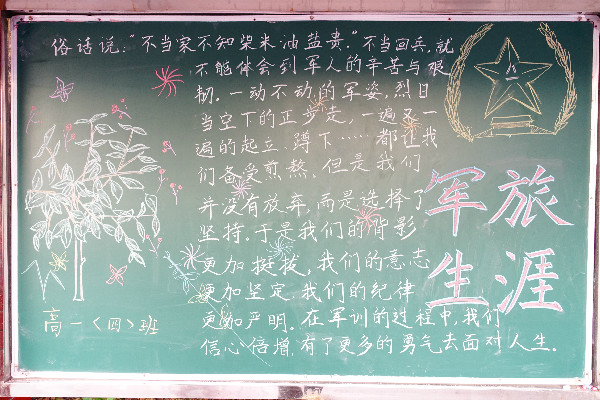 俗话说："不当家不知柴米油盐贵."不当回兵,就
不能体会到军人的辛苦与艰
韧.一动不动的军姿,烈日
当空下的正步走,一遍又一
遍的起立.蹲下……都让我
们备受煎熬.但是我们
并没有放弃,而是选择了
坚持.于是我们的背影
更加挺拔,我们的意志
更加坚定.我们的纪律
更加严明.在军训的过程中,我们
信心倍增.有了更多的勇气去面对人生.
军旅
生涯
高一<四>班
八一